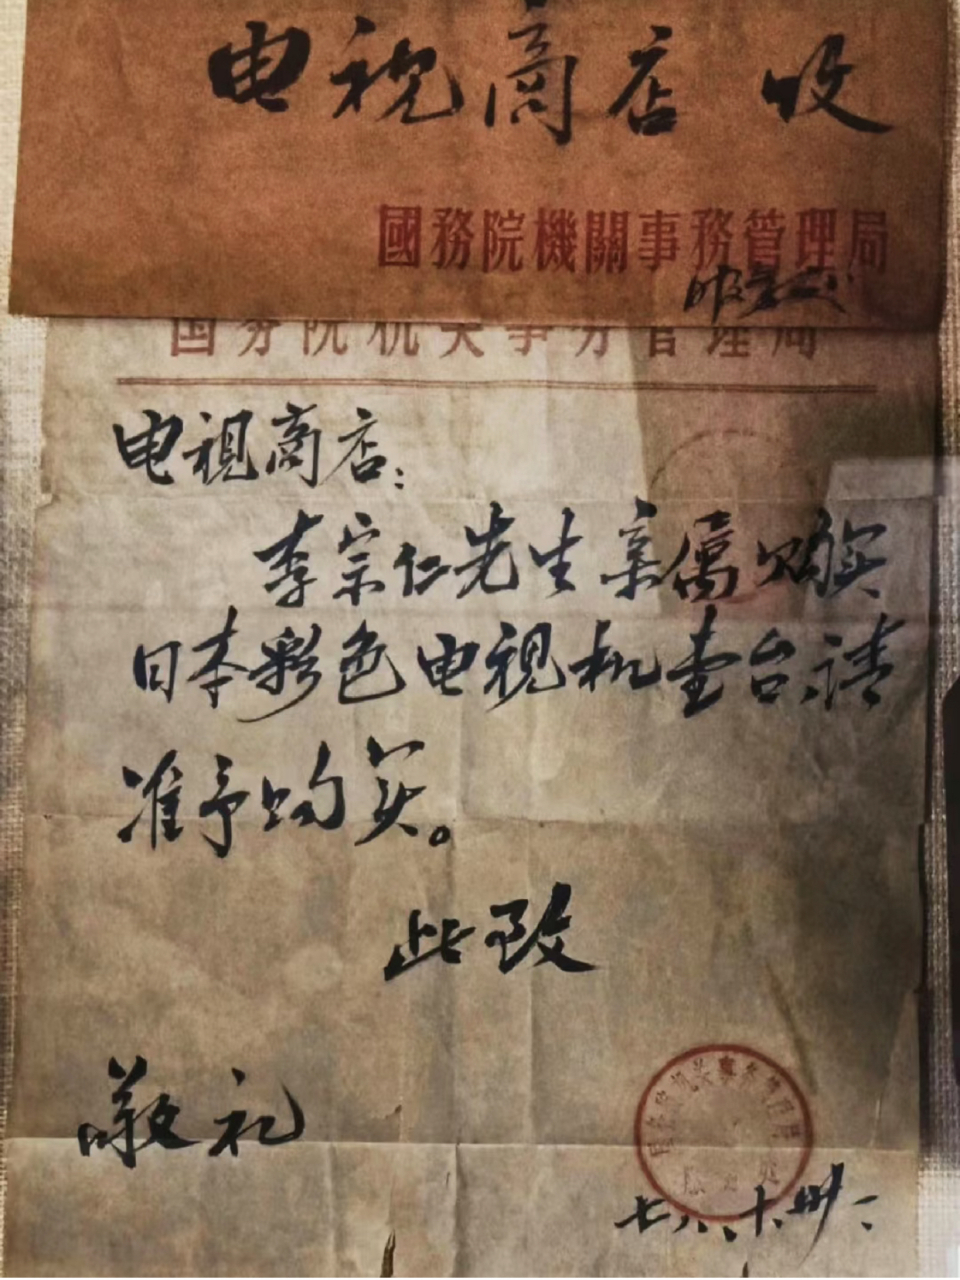 电视商店 收
國務院機關事務管理局
国务院机关事务管理局
电视商店：
李宗仁先生亲属购买
日本彩色电视机壹台，请
准予购买。
此致
敬礼